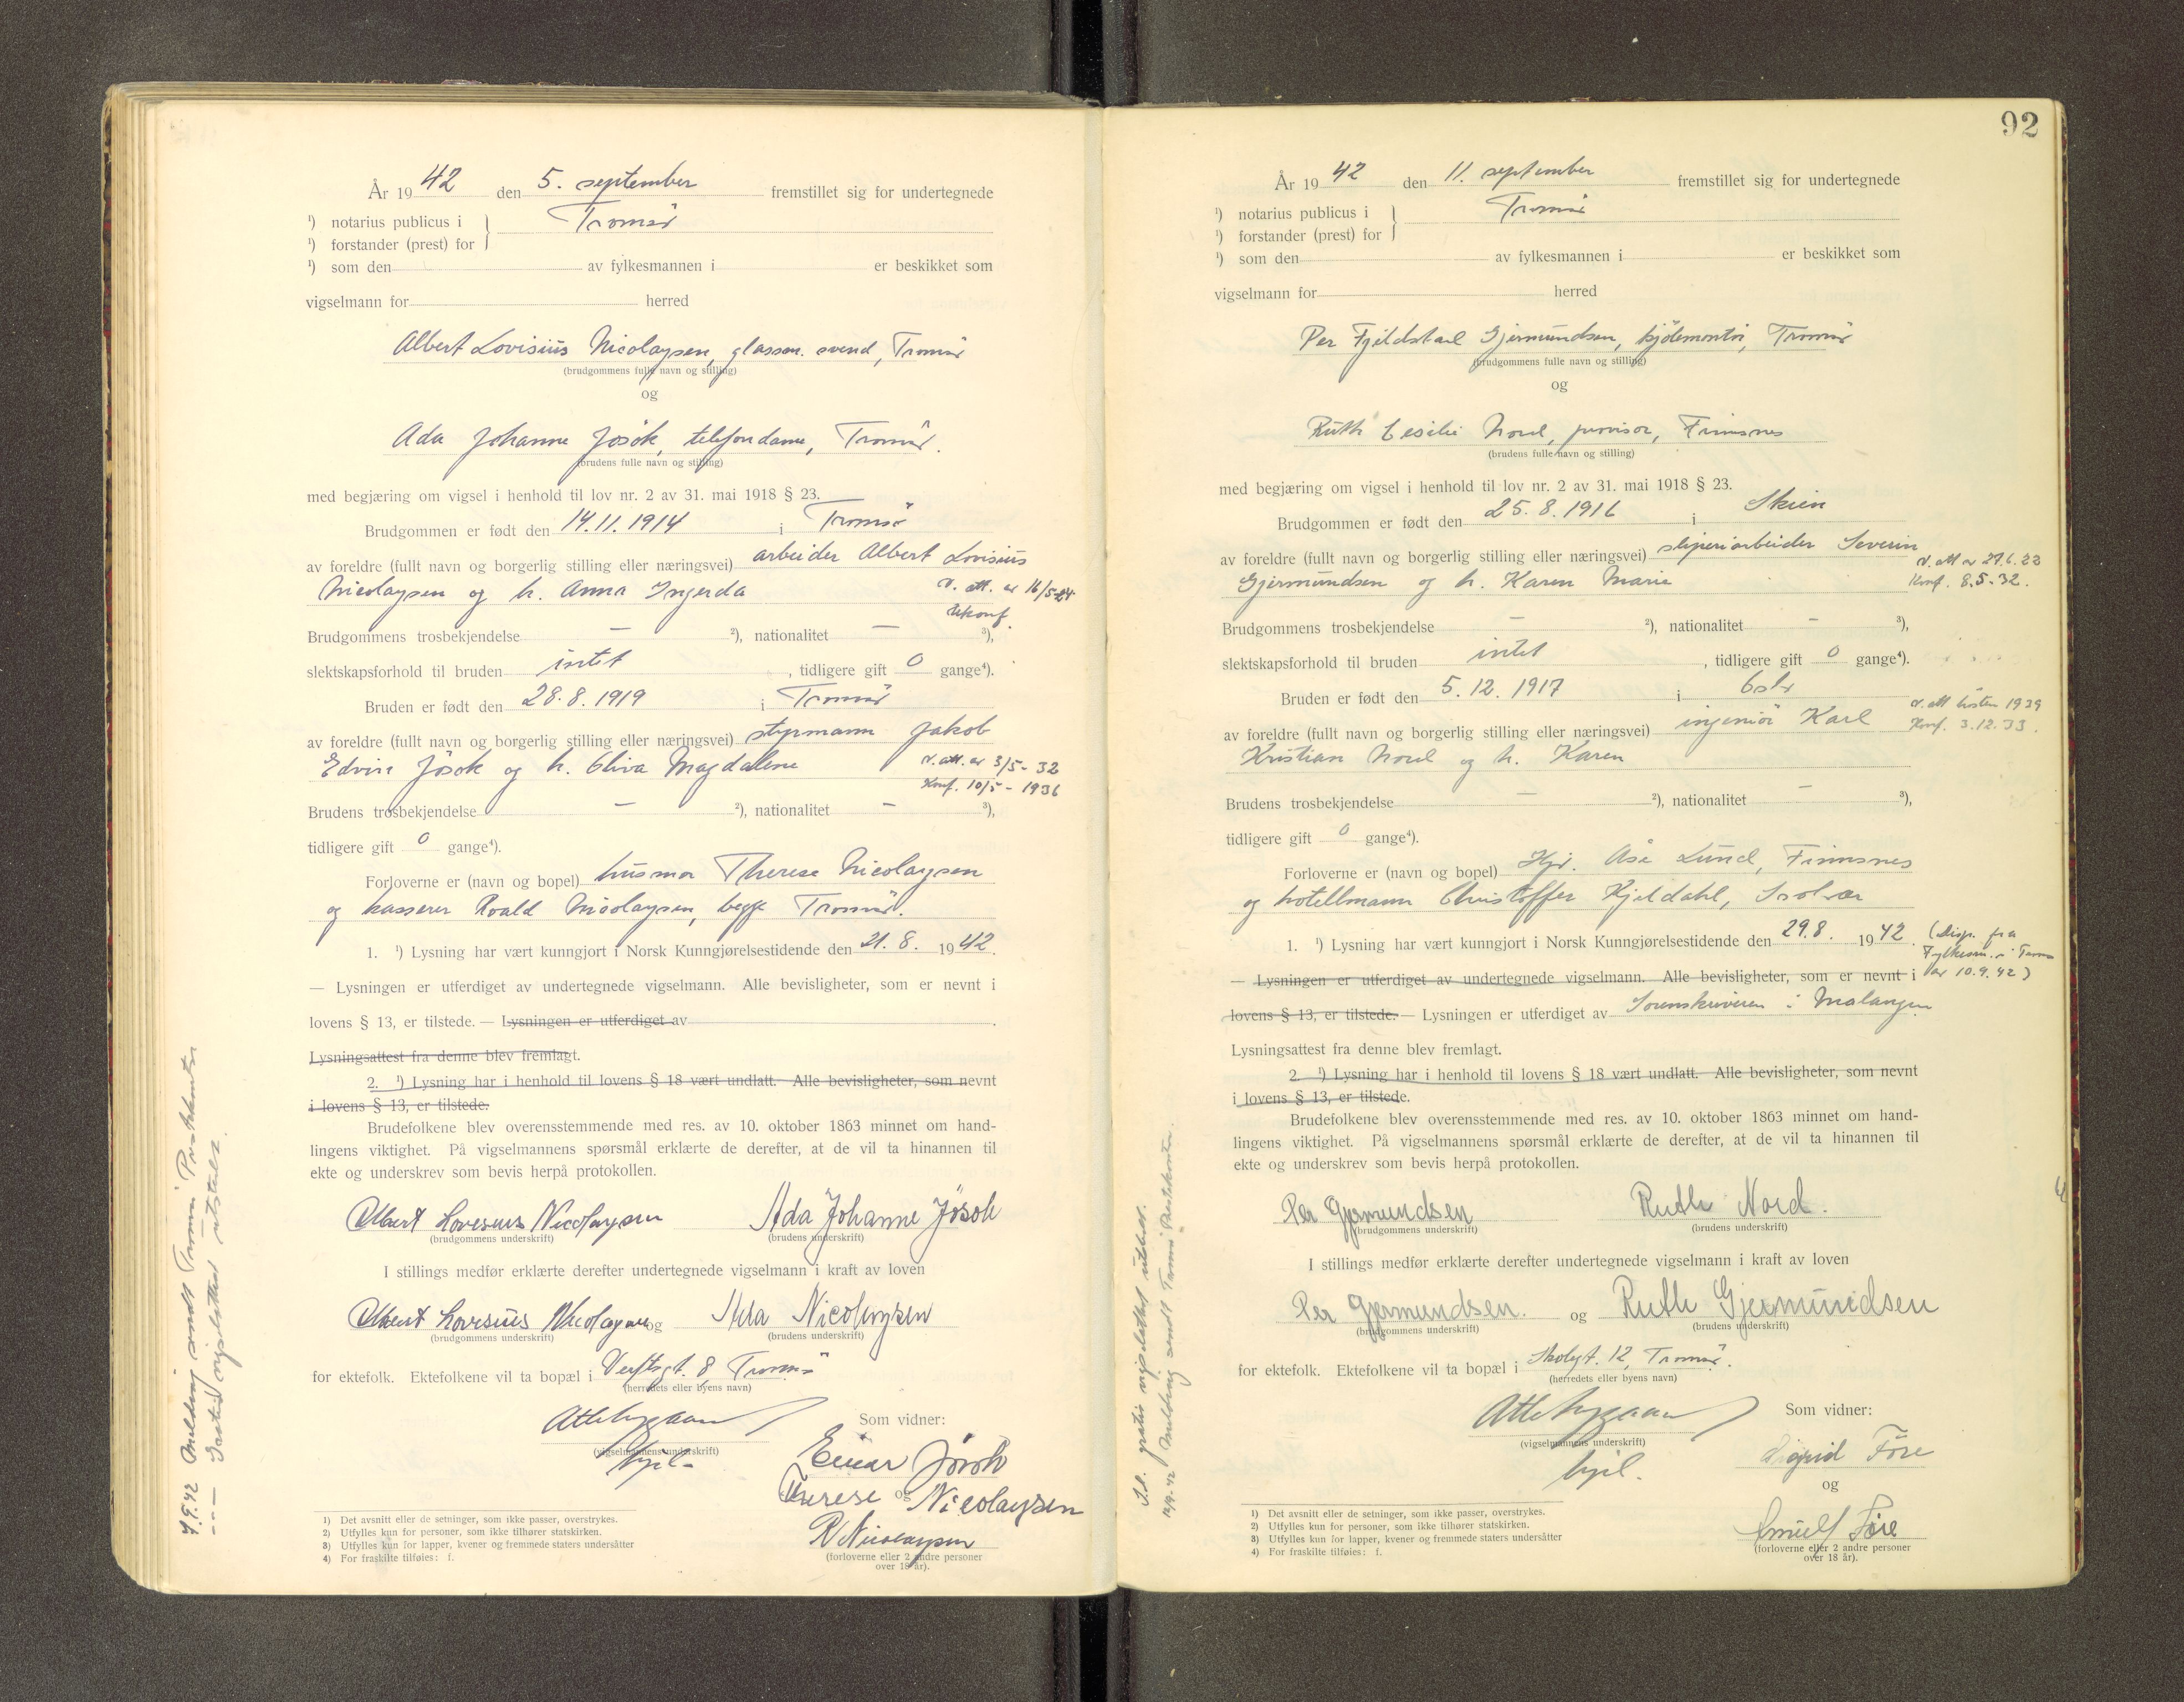 År 19 42 den 5. september fremstillet sig for undertegnede
¹) notarius publicus i } Tromsö
¹) forstander (prest) for
¹) som den av fylkesmannen i er beskikket som
vigselmann for herred
Albert Lovisius Nicolaysen, glassm. svend, Tromsö
(brudgommens fulle navn og stilling)
og
Ada Johanne Jøsok, telefondame, Tromsö.
(brudens fulle navn og stilling)
med begjæring om vigsel i henhold til lov nr. 2 av 31. mai 1918 § 23.
Brudgommen er født den 14.11.1914 i Tromsö
av foreldre (fullt navn og borgerlig stilling eller næringsvei) arbeider Albert Lovisius
Nicolaysen og h. Anna Ingerda
v. att. av 16/5-24
Ukonf.
Brudgommens trosbekjendelse — ²), nationalitet — ³),
slektskapsforhold til bruden intet, tidligere gift 0 gange⁴).
Bruden er født den 28.8.1919 i Tromsö
av foreldre (fullt navn og borgerlig stilling eller næringsvei) styrmann Jakob
Edvin Jøsok og h. Oliva Magdalene
v. att. av 3/5-32
Konf. 10/5-1936
Brudens trosbekjendelse — ²), nationalitet — ³),
tidligere gift 0 gange⁴).
Forloverne er (navn og bopel) husmor Therese Nicolaysen
og kasserer Roald Nicolaysen, begge Tromsö.
1. ¹) Lysning har vært kunngjort i Norsk Kunngjørelsestidende den 21.8. 1942.
— Lysningen er utferdiget av undertegnede vigselmann. Alle bevisligheter, som er nevnt i
lovens § 13, er tilstede. — Lysningen er utferdiget av
Lysningsattest fra denne blev fremlagt.
2. ¹) Lysning har i henhold til lovens § 18 vært undlatt. Alle bevisligheter, som nevnt
i lovens § 13, er tilstede.
Brudefolkene blev overensstemmende med res. av 10. oktober 1863 minnet om hand-
lingens viktighet. På vigselmannens spørsmål erklærte de derefter, at de vil ta hinannen til
ekte og underskrev som bevis herpå protokollen.
Albert Lovisius Nicolaysen Ada Johanne Jøsok
(brudgommens underskrift) (brudens underskrift)
I stillings medfør erklærte derefter undertegnede vigselmann i kraft av loven
Albert Lovisius Nicolaysen og Ada Nicolaysen
(brudgommens underskrift) (brudens underskrift)
for ektefolk. Ektefolkene vil ta bopæl i Verftsgt. 8, Tromsö
(herredets eller byens navn)
Som vidner:
(vigselmannens underskrift)
Einar Jøsok
Therese og Nicolaysen
R Nicolaysen
(forloverne eller 2 andre personer
over 18 år).
1) Det avsnitt eller de setninger, som ikke passer, overstrykes.
2) Utfylles kun for personer, som ikke tilhører statskirken.
3) Utfylles kun for lapper, kvener og fremmede staters undersåtter
4) For fraskilte tilføies: f.
7.9.42 Melding sendt Tromsö Prestekontor
-- — Gratis vigselattest utstedt.
92
År 19 42 den 11. september fremstillet sig for undertegnede
¹) notarius publicus i } Tromsö
¹) forstander (prest) for
¹) som den av fylkesmannen i er beskikket som
vigselmann for herred
Per Fjeldstad Gjermundsen, kjölemontör, Tromsö
(brudgommens fulle navn og stilling)
og
Ruth Cesilie Nord, provisor, Finnsnes
(brudens fulle navn og stilling)
med begjæring om vigsel i henhold til lov nr. 2 av 31. mai 1918 § 23.
Brudgommen er født den 25.8.1916 i Skien
av foreldre (fullt navn og borgerlig stilling eller næringsvei) sliperiarbeider Severin
Gjermundsen og h. Karen Marie
Konf. 8.5-32.
Brudgommens trosbekjendelse — ²), nationalitet — ³),
slektskapsforhold til bruden intet, tidligere gift 0 gange⁴).
Bruden er født den 5.12.1917 i Oslo
av foreldre (fullt navn og borgerlig stilling eller næringsvei) ingeniör Karl
Kristian Nord og h. Karen
v. att hösten 1939
Konf. 3.12.33.
Brudens trosbekjendelse — ²), nationalitet — ³),
tidligere gift 0 gange⁴).
Forloverne er (navn og bopel) Åse Lund, Finnsnes
og hotellmann Christoffer Kjeldahl, Svolvær
1. ¹) Lysning har vært kunngjort i Norsk Kunngjørelsestidende den 29.8. 1942. (Disp. fra
Fylkesm. i Troms
av 10.9.42)
— Lysningen er utferdiget av undertegnede vigselmann. Alle bevisligheter, som er nevnt i
lovens § 13, er tilstede. — Lysningen er utferdiget av Sorenskriveren i Malangen
Lysningsattest fra denne blev fremlagt.
2. ¹) Lysning har i henhold til lovens § 18 vært undlatt. Alle bevisligheter, som nevnt
i lovens § 13, er tilstede.
Brudefolkene blev overensstemmende med res. av 10. oktober 1863 minnet om hand-
lingens viktighet. På vigselmannens spørsmål erklærte de derefter, at de vil ta hinannen til
ekte og underskrev som bevis herpå protokollen.
Per Gjermundsen Ruth Nord.
(brudgommens underskrift) (brudens underskrift)
I stillings medfør erklærte derefter undertegnede vigselmann i kraft av loven
Per Gjermundsen. og Ruth Gjermundsen
(brudgommens underskrift) (brudens underskrift)
for ektefolk. Ektefolkene vil ta bopæl i Skolegt. 12, Tromsö.
(herredets eller byens navn)
Som vidner:
(vigselmannens underskrift)
Sigrid Føre
og
Føre
(forloverne eller 2 andre personer
over 18 år).
1) Det avsnitt eller de setninger, som ikke passer, overstrykes.
2) Utfylles kun for personer, som ikke tilhører statskirken.
3) Utfylles kun for lapper, kvener og fremmede staters undersåtter
4) For fraskilte tilføies: f.
S.d. gratis vigselattest utstedt.
12/9-42 Melding sendt Tromsö Prestekontor.